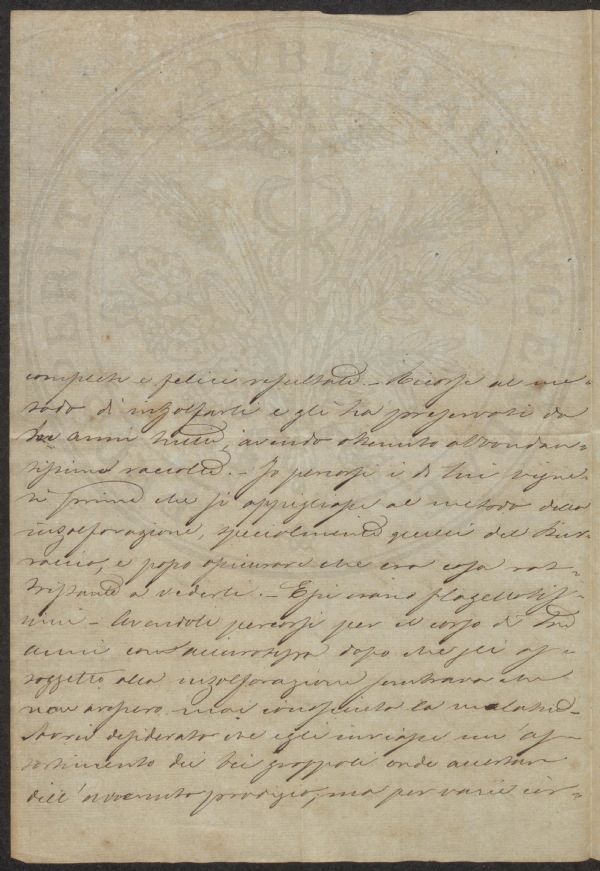 PROSPERITATI PVBLICAE AVGE
completi e felici resultati. – Ricorse al me-
todo di insolfarli e gli ha preservati da
tre anni tutti, avendo ottenuto abbondan-
tissime raccolte. – Io percorsi i di lui vigne-
ti prima che si appigliasse al metodo della
insolforazione, specialmente quelli del
e posso assicurare che era cosa rat-
tristante a vederli. – Essi erano flagellatis-
simi – Avendoli percorsi per il corso di tre
anni con accuratezza dopo che gli as-
soggettò alla insolforazione sembrava che
non avessero mai conosciuto la malattia –
Avrei desiderato che egli inviasse un' as-
sortimento dei bei grappoli onde accertare
dell' avvenuto prodigio, ma per varie cir-